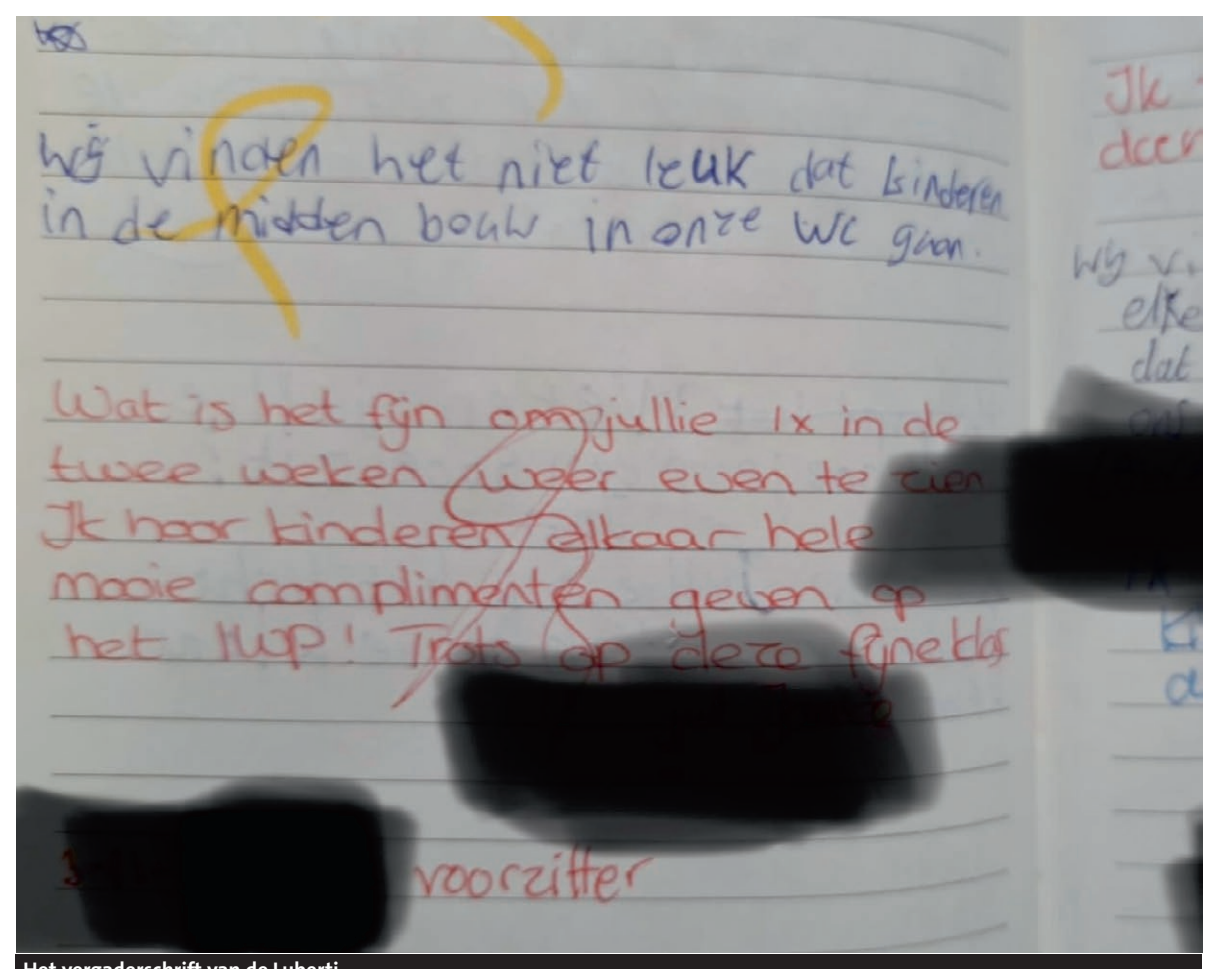 wij vinden het niet leuk dat kinderen
in de midden bouw in onze WC gaan.
Wat is het fijn om jullie 1x in de
twee weken weer even te zien
Ik hoor kinderen elkaar hele
mooie complimenten geven op
het !! Trots op deze fijne klas
voorzitter
Ik
wij
elke
dat
Het vergaderschrift van de Luberti